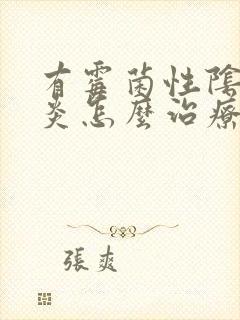 有霉菌性陰
炎怎麼治療
張爽